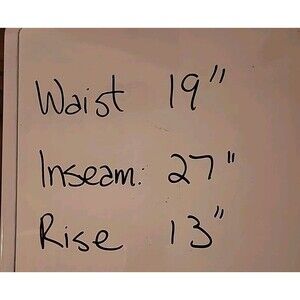 Waist 19"
Inseam: 27"
Rise 13"